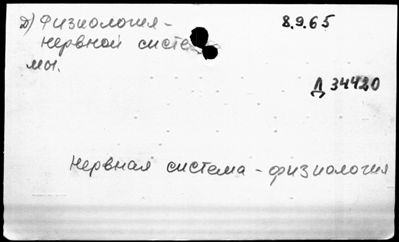 д) Физиология - 8.9.65
нервной систе
мы.
Д 34420
Нервная система - физиология